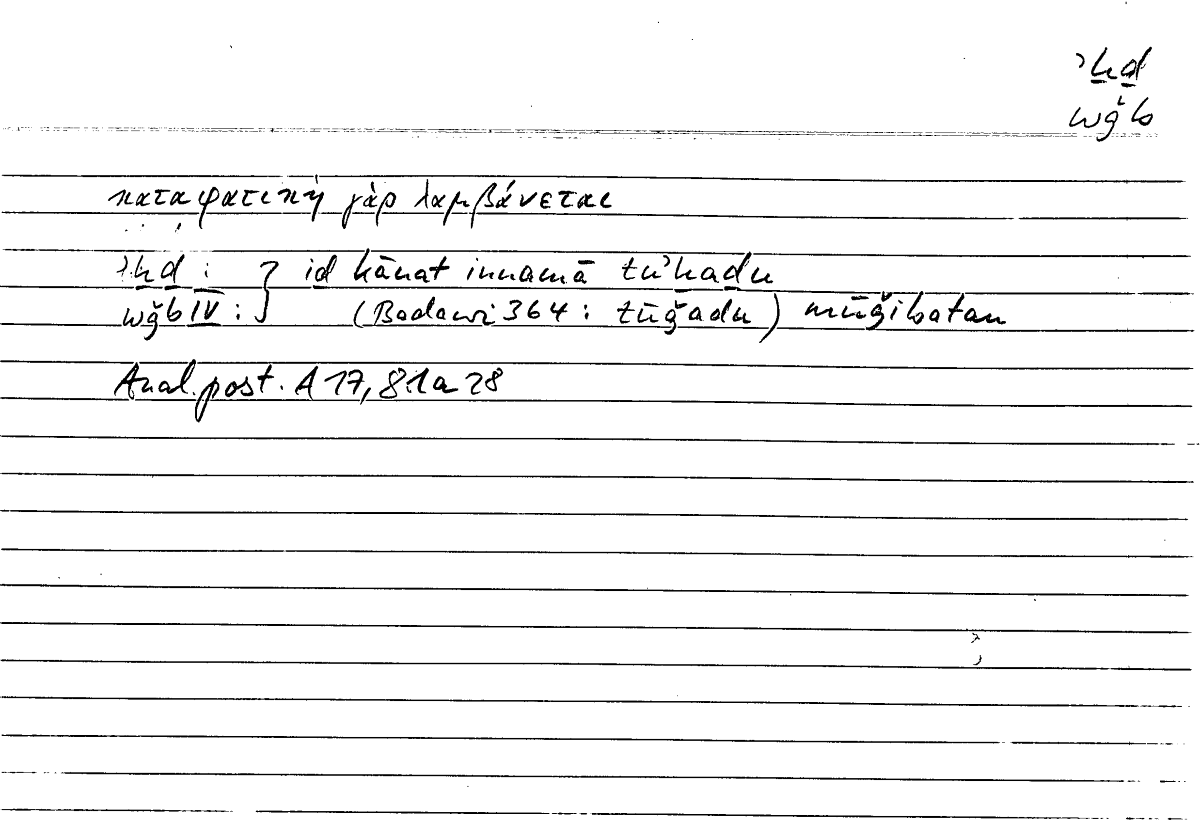 ʾḫḏ
wǧb
καταφατικὴ γὰρ λαμβάνεται
ʾḫḏ : } iḏ kānat innamā tuʾḫaḏu
wǧb IV : } (Badawi 364 : tūǧadu) mūǧibatan
Anal. post. A 17, 81a 28